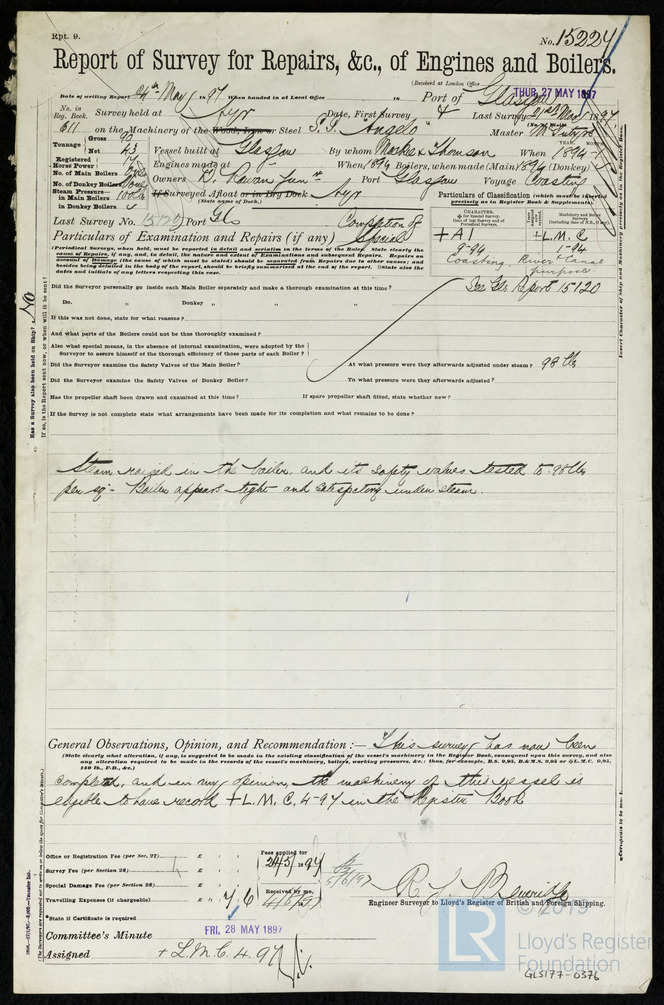 Rpt. 9.
No. 15224
Report of Survey for Repairs, &c., of Engines and Boilers.
(Received at London Office THUR, 27 MAY 1897
Date of writing Report 24th May 1897 When handed in at Local Office 18 Port of Glasgow
No. in Reg. Book. Survey held at Ayr Date, First Survey 4 Last Survey 21st May 1897
611 on the Machinery of the Wood, Iron or Steel S.S. "Angelo" Master
Tonnage Gross 90 Net 43 Vessel built at Glasgow By whom Mackie & Thomson When 1894
Registered Horse Power 17 Engines made at When 1894 Boilers, when made (Main) 1894 (Donkey)
No. of Main Boilers One Owners D. Rowan Junr Port Glasgow Voyage Coasting
No. of Donkey Boilers None
Steam Pressure in Main Boilers 100 lb If Surveyed Afloat or in Dry Dock Ayr
(State name of Dock.)
in Donkey Boilers
Particulars of Classification (which must be inserted precisely as in Register Book & Supplements).
Last Survey No. 15120 Port Gls Completion of Special
Particulars of Examination and Repairs (if any)
CHARACTER.
+A1 +L.M.C.
9-94 1-94
Coasting River & Canal purposes
(Periodical Survey, when held, must be reported in detail and seriatim in the terms of the Rules. State clearly the
cause of Repairs, if any, and, in detail, the nature and extent of Examinations and subsequent Repairs. Repairs on
account of Damage (the cause of which must be stated) should be separated from Repairs due to other causes; and
besides being detailed in the body of the report, should be briefly summarised at the end of the report. State also the
dates and initials of any letters respecting this case.)
See Gls Report 15120
Did the Surveyor personally go inside each Main Boiler separately and make a thorough examination at this time?
Do. " Donkey " " "
If this was not done, state for what reasons?
And what parts of the Boilers could not be thus thoroughly examined?
Also what special means, in the absence of internal examination, were adopted by the
Surveyor to assure himself of the thorough efficiency of those parts of each Boiler?
Did the Surveyor examine the Safety Valves of the Main Boiler? At what pressure were they afterwards adjusted under steam? 98 lbs
Did the Surveyor examine the Safety Valves of Donkey Boiler? To what pressure were they afterwards adjusted?
Has the propeller shaft been drawn and examined at this time? If spare propeller shaft fitted, state whether new?
If the Survey is not complete state what arrangements have been made for its completion and what remains to be done?
Has a Survey also been held on Ship? No
If so, is the Report sent now, or when will it be sent?
Steam raised in the boiler, and its safety valves tested to 98 lbs
per sq" Boiler appears tight and satisfactory under steam.
General Observations, Opinion, and Recommendation:— This survey has now been
(State clearly what alteration, if any, is suggested to be made in the existing classification of the vessel's machinery in the Register Book, consequent upon this survey, and also
any alteration required to be made in the records of the vessel's machinery, boilers, working pressures, &c.: thus, for example, B.S. 9,95, B.&M.S. 9,95 or L.M.C. 9,95,
140 lb., F.D., &c.)
completed, and in my opinion, the machinery of this vessel is
eligible to have record +L.M.C. 4-97 in the Register Book
Office or Registration Fee (per Sec. 27) £ : :
Survey Fee (per Section 28) £ : :
Special Damage Fee (per Section 28) £ : :
Travelling Expenses (if chargeable) £ 7/6
Fees applied for 24/5/1897
Received by me,
*State if Certificate is required
Engineer Surveyor to Lloyd's Register of British and Foreign Shipping.
Committee's Minute FRI, 28 MAY 1897
Assigned + L.M.C. 4.97
© 2019
LR
Lloyd's Register
Foundation
GLS177-0376